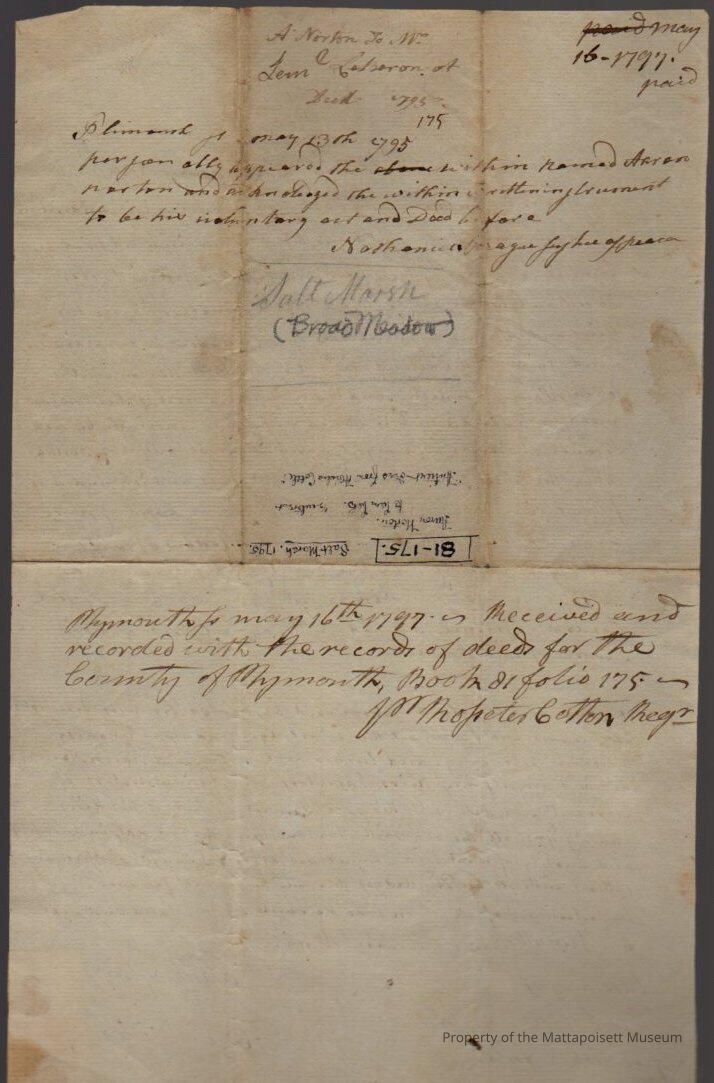 A Norton To Mr
Leml Lebaron at
Deed 1795
175
paid may
16-1797.
paid
Plimouth ss may 13th 1795
personally appeared the above within named Aaron
norton and acknoleged the within written instrument
to be his voluntary act and Deed before
Nathaniel Sprague Justice of peace
Salt Marsh
(Broad Meadow)
81-175. Salt Marsh. 1795.
Aaron Norton.
to Lem. Leb.
Plymouth ss may 16th 1797. Received and
recorded with the records of deeds for the
County of Plymouth, Book 81 folio 175
pr Rosseter Cotton Regr
Property of the Mattapoisett Museum